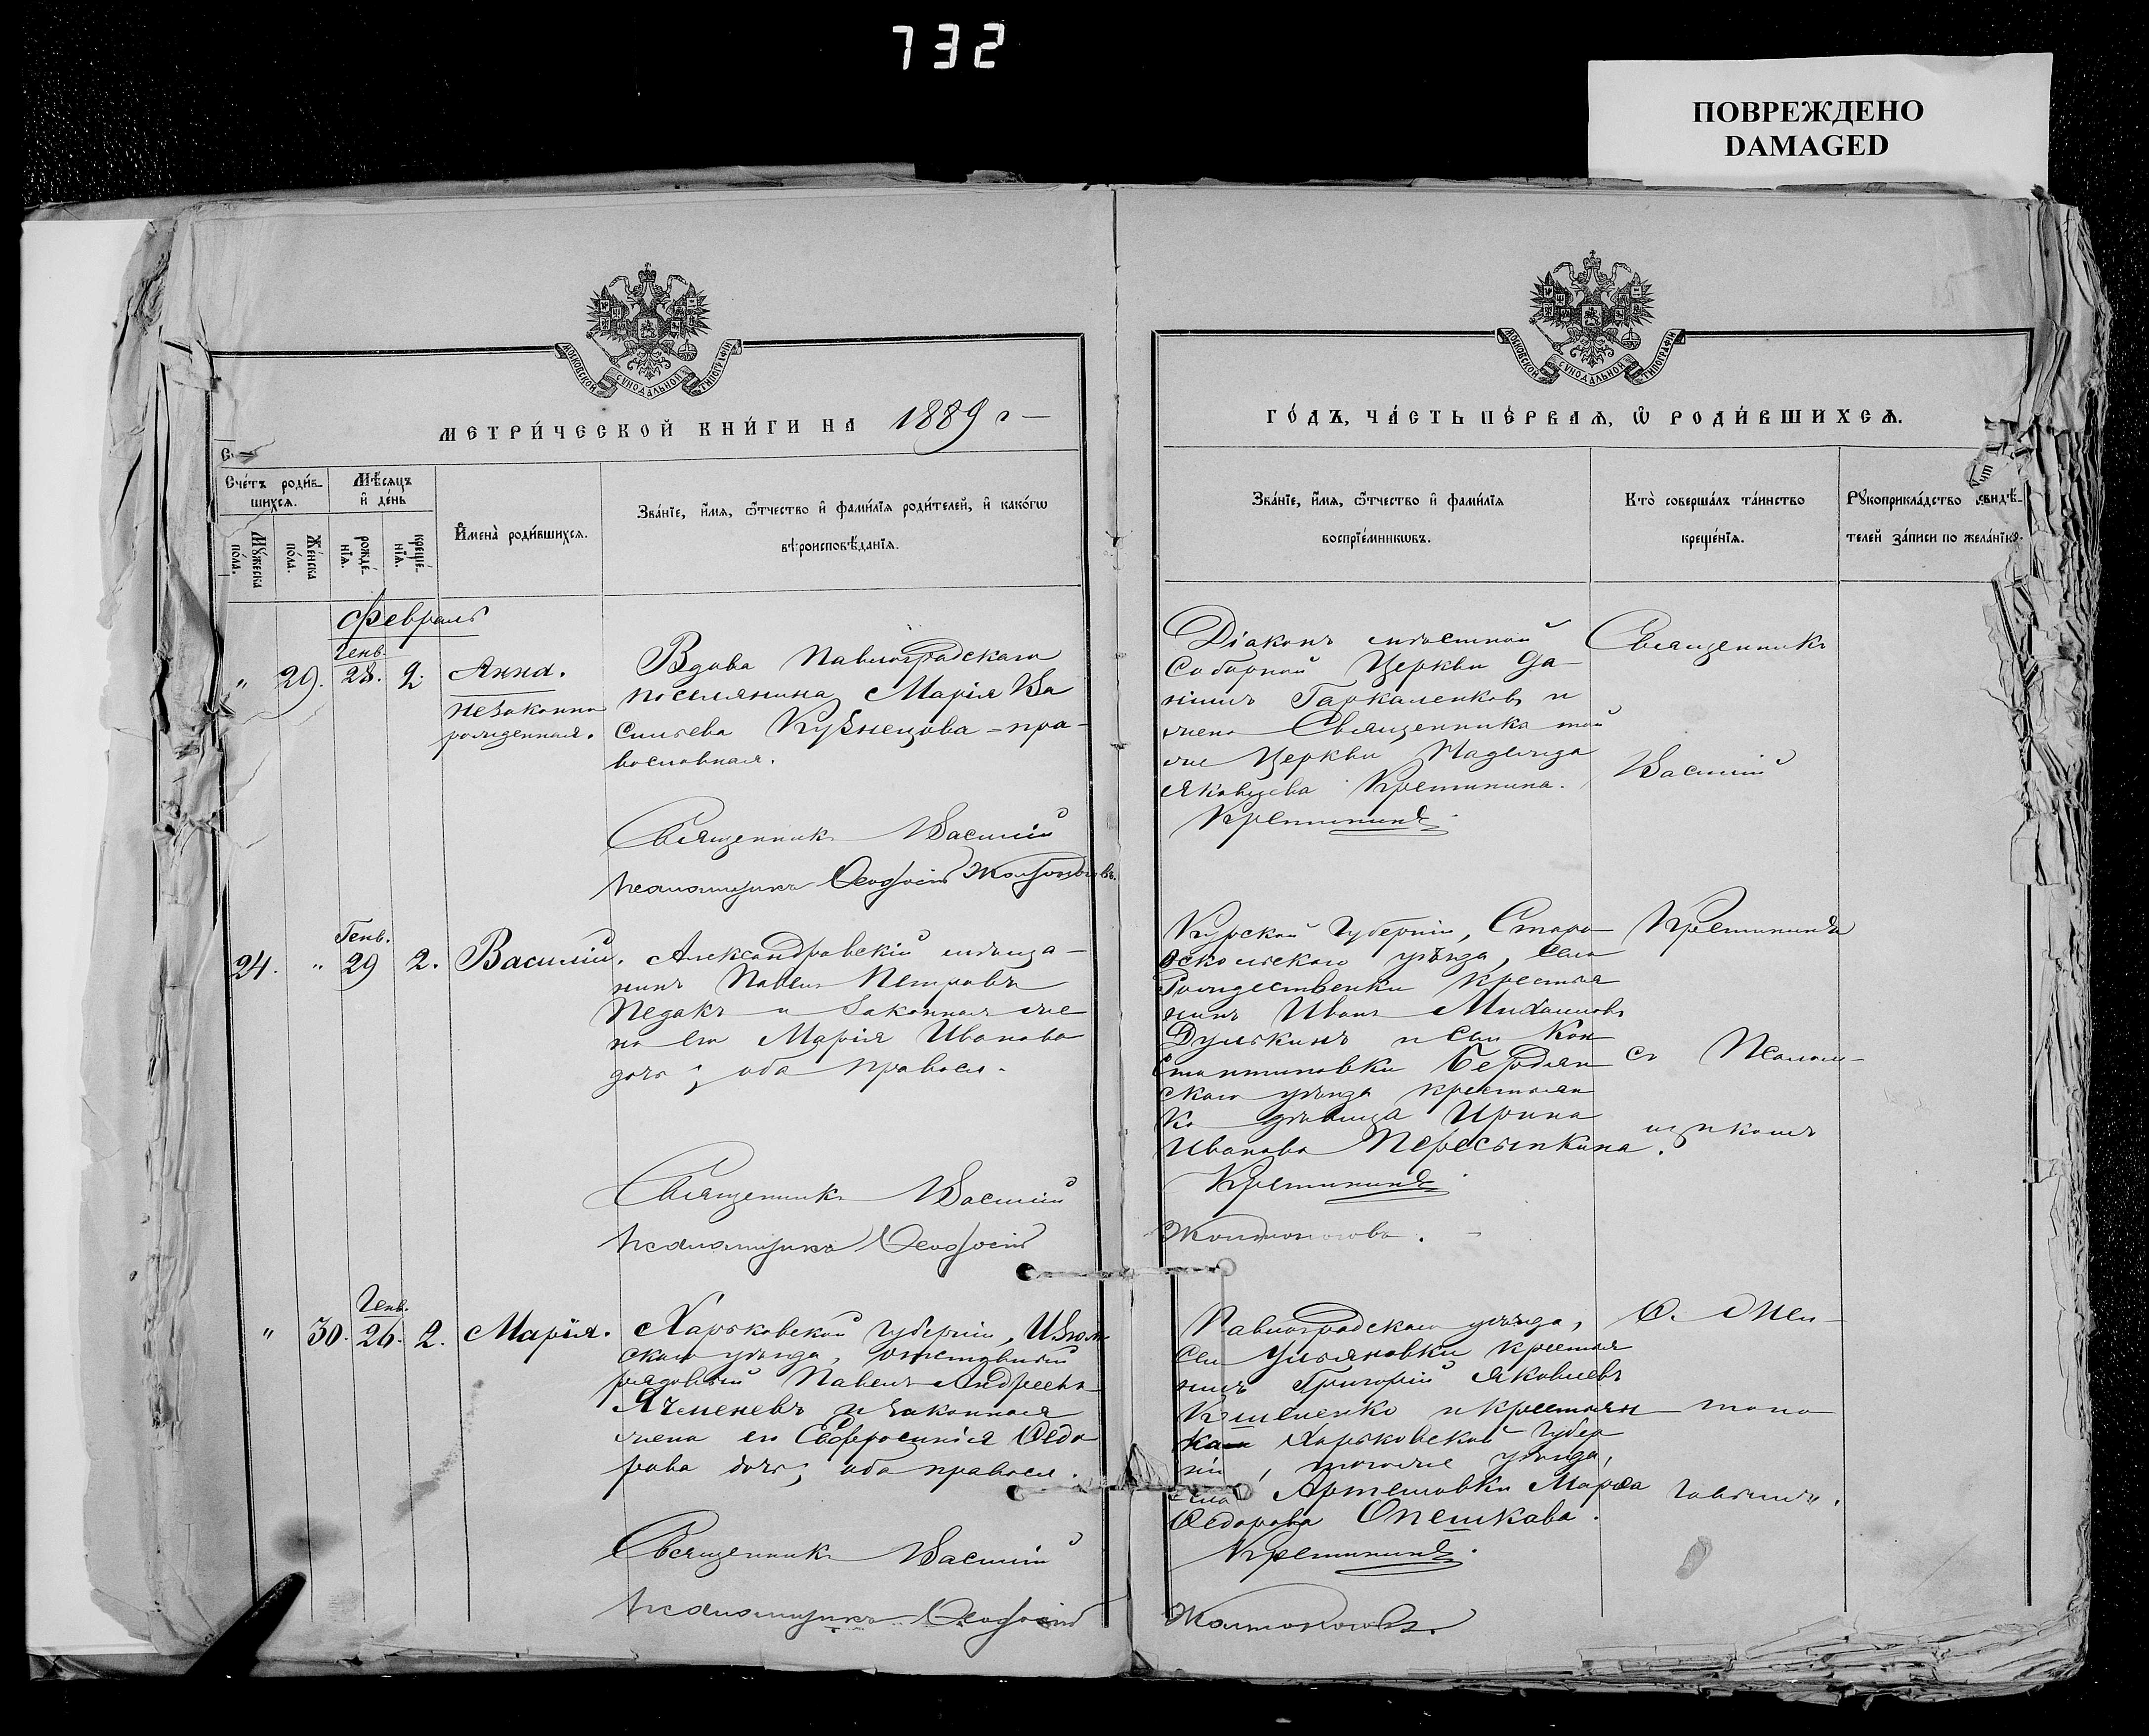 732
ПОВРЕЖДЕНО
DAMAGED
МОСКОВСКОЙ СѴНОДАЛЬНОЙ ТИПОГРАФІИ
МОСКОВСКОЙ СѴНОДАЛЬНОЙ ТИПОГРАФІИ
МЕТРИ́ЧЕСКОЙ КНИ́ГИ НА 1889 г
ГО́ДЪ, ЧА́СТЬ ПЕ́РВАЯ, Ѡ҆ РОДИ́ВШИХСЯ.
Сче́тъ роди́в-
шихсѧ.
Мѣ́сяцъ
и҆ де́нь
Мꙋ́жеска
по́ла.
Же́нска
по́ла.
рожде́-
нїѧ.
креще́-
нїѧ.
И҆мена̀ роди́вшихсѧ.
Зва́нїе, и҆́мѧ, ѻ҆́тчество и҆ фамі́лїѧ роди́телей, и҆ како́гѡ
вѣроисповѣ́данїѧ.
Зва́нїе, и҆́мѧ, ѻ҆́тчество и҆ фами́лїѧ
воспрїе́мникѡвъ.
Кто̀ соверша́лъ та́инство
креще́нїѧ.
Рꙋкоприкла́дство свидѣ́-
телей за́писи по жела́нїю.
февраль
Генв.
" 29. 28. 2. Анна.
незаконно
рожденная.
Вдова Павлоградскаго
поселянина Марія Ва
сильева Кузнецова - пра-
вославная.
Священникъ Василій
Псаломщикъ Ѳеодосій Жолтоноговъ.
Діаконъ мѣстной
Соборной Церкви Да-
ніилъ Гаркаленковъ и
жена Священника той
же Церкви Надежда
Яковлева Кремпинина.
Священникъ
Василій
24. " Генв. 29 2. Василій.
Александровскій мѣща-
нинъ Павелъ Петровъ
Педакъ и законная же
на его Мария Иванова
дочь; оба правосл.
Священникъ Василій
Псаломщикъ Ѳеодосій
Курской Губерніи, Старо-
оскольскаго уѣзда, села
Рождественки крестья
нинъ Иванъ Михаиловъ
Дулькинъ и села Кон
стантиновки Бердян
скаго уѣзда крестьян
ка дѣвица Ирина
Иванова Пересыпкина.
Жолтоногова.
съ Псалом-
щикомъ
" 30. Генв. 26. 2. Марія.
Харьковской губерніи, Изюм
скаго уѣзда, отставный
рядовый Павелъ Андреевъ
Ячменевъ и законная
жена его Евфросинія Ѳедо
рова дочь; оба правосл.
Священникъ Василій
Псаломщикъ Ѳеодосій
Павлоградскаго уѣзда,
села Ульяновки крестья
нинъ Григорій Яковлевъ
и крестьян
ка Харьковской Губер
ніи, уѣзда,
села Артемовки Марѳа
Ѳедорова Опешкова.
Жолтоноговъ.
Ѳ. Жел-
тоно
говымъ.